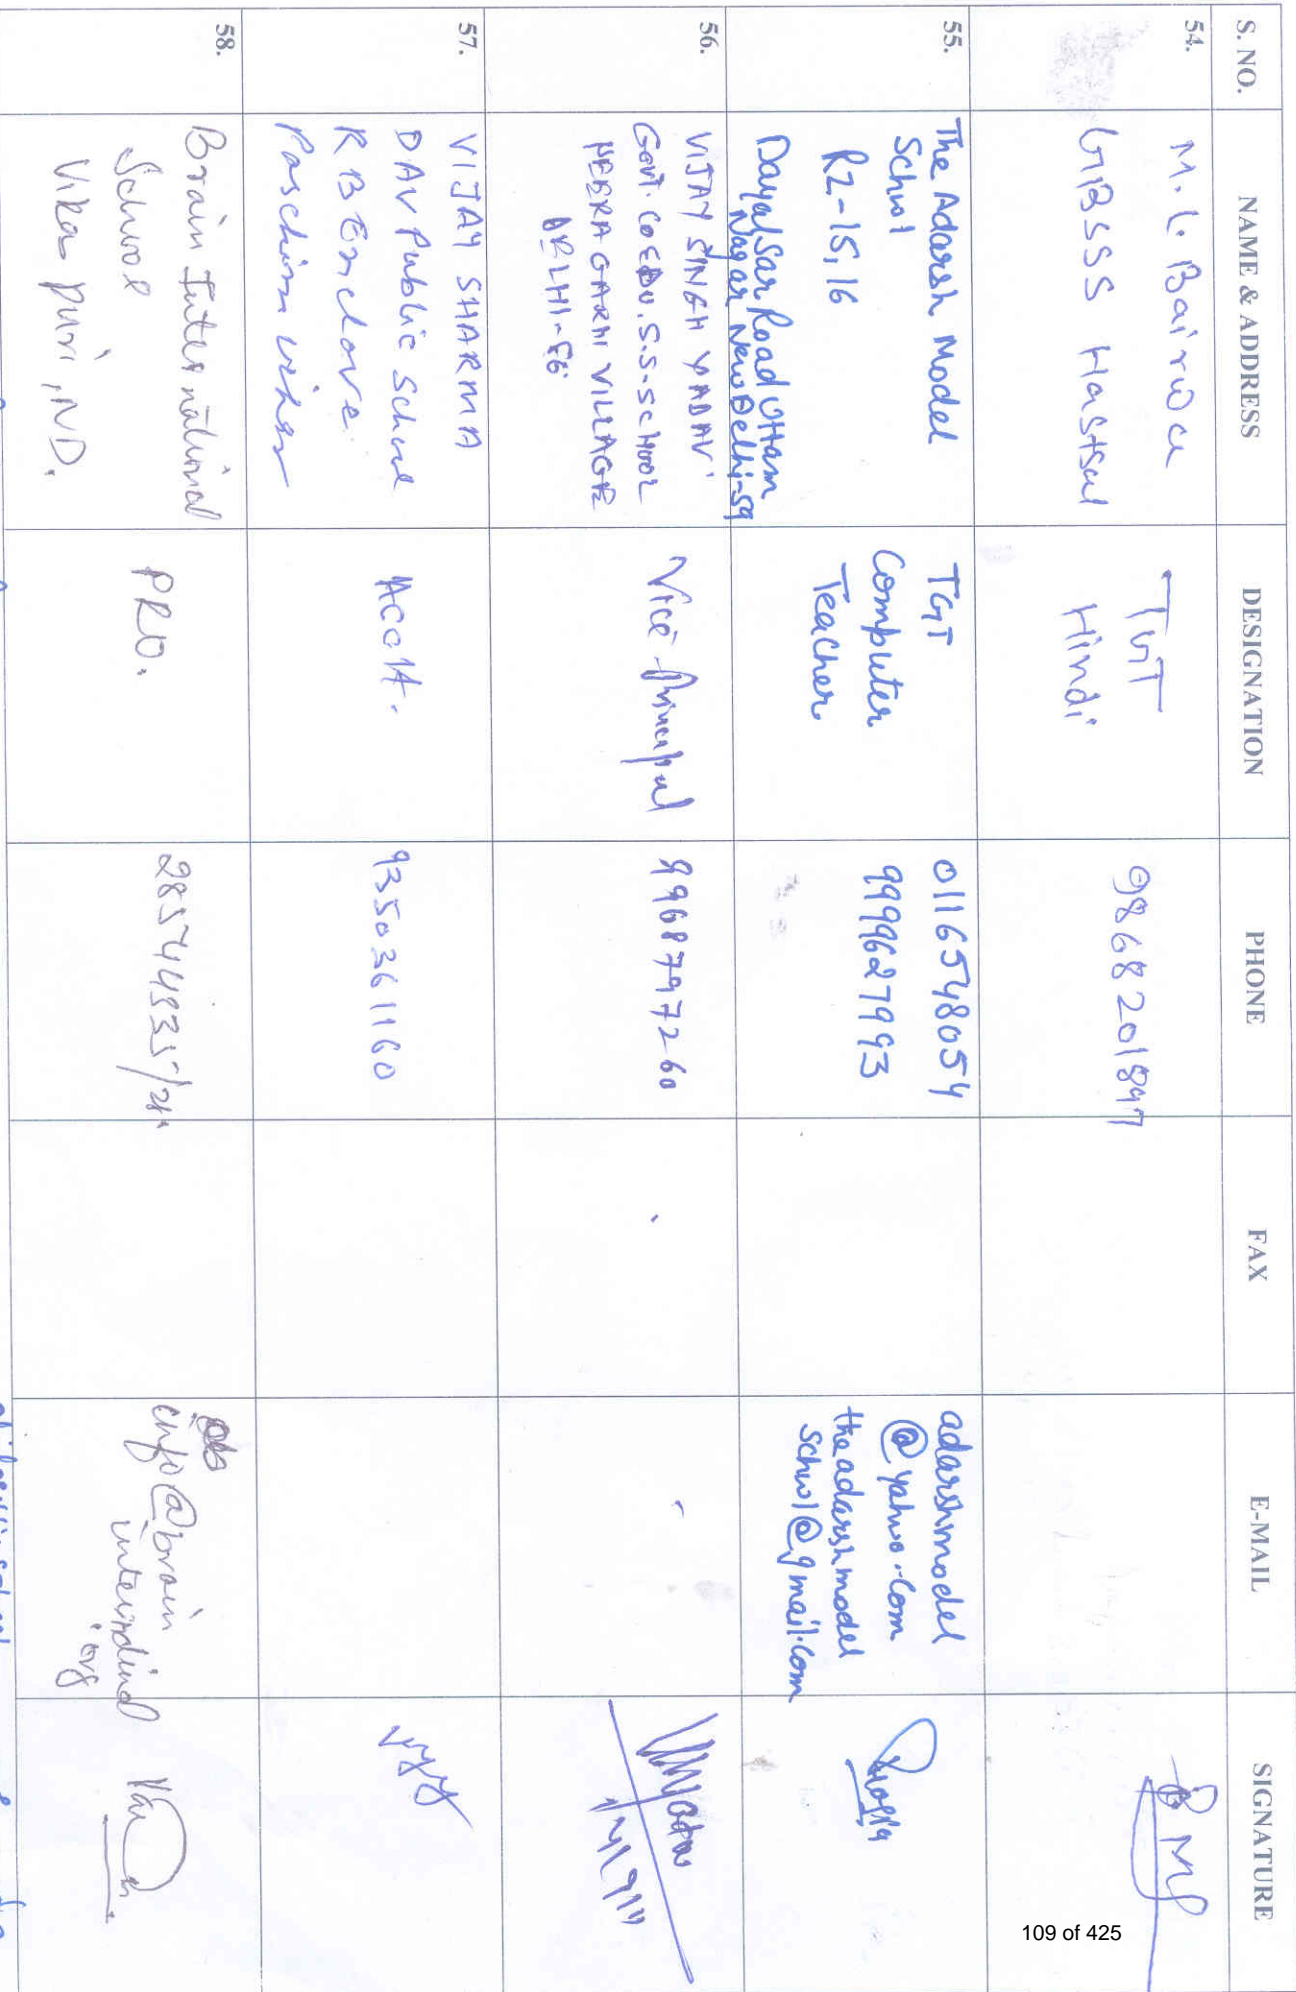 S. NO.
NAME & ADDRESS
DESIGNATION
PHONE
FAX
E-MAIL
SIGNATURE
54.
M. L. Bairwa
GBSSS Hastsal
TGT
Hindi
9868201897
55.
The Adarsh Model
School
RZ-15,16
Dayal Sar Road Uttam
Nagar New Delhi-59
TGT
Computer
Teacher
01165948054
9999627993
adarshmodel
@yahoo.com
theadarshmodel
school@gmail.com
56.
VIJAY SINGH YADAV
Govt. CO EDU. S.S-SCHOOL
HEERA GARHI VILLAGE
DELHI-56
Vice-Principal
9968797260
57.
VIJAY SHARMA
DAV Public School
R B Enclave
Paschim vihar
Acctt.
9350361160
58.
Brain International
School
Vikas puri, ND.
PRO.
info@brain
.org
109 of 425